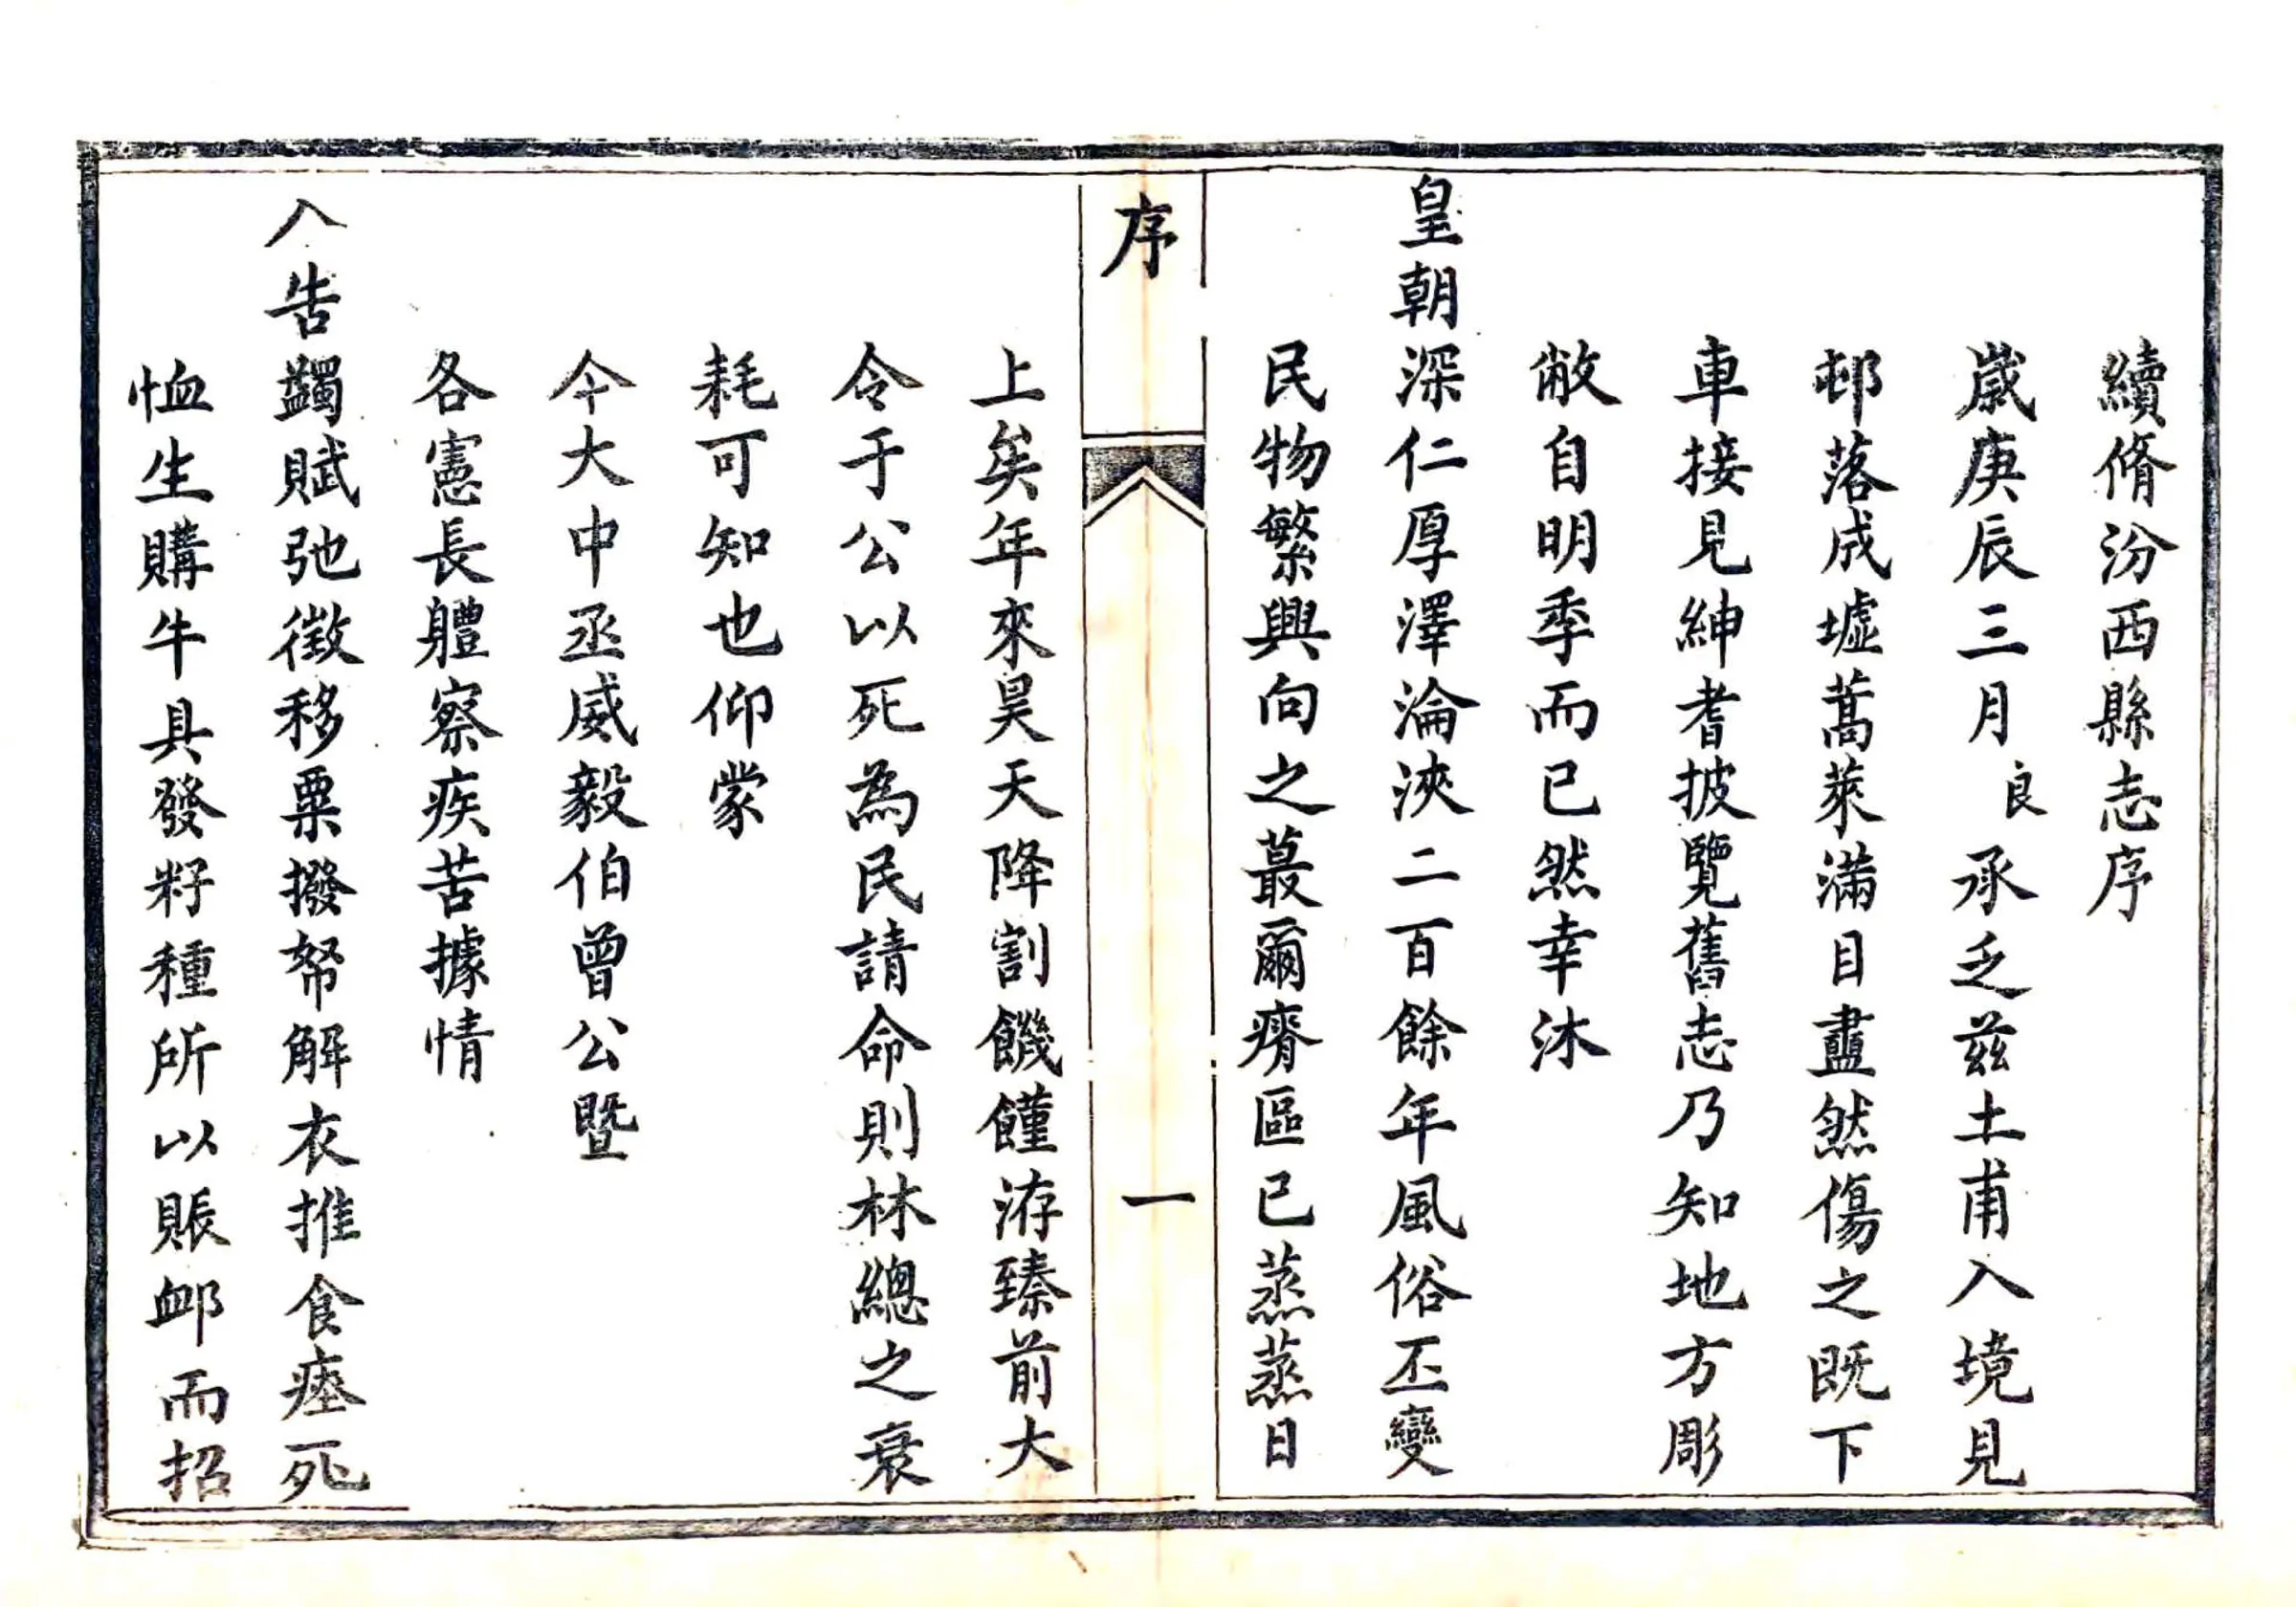 續脩汾西縣志序
歲庚辰三月良承乏茲土甫入境見
邨落成墟蒿萊滿目盡然傷之既下
車接見紳耆披覽舊志乃知地方彫
敝自明季而已然幸沐
皇朝深仁厚澤淪浹二百餘年風俗丕變
民物繁興向之蕞爾瘠區已蒸蒸日
序
一
上矣年來昊天降割饑饉洊臻前大
令于公以死為民請命則林總之衰
耗可知也仰蒙
今大中丞威毅伯曾公暨
各憲長軆察疾苦據情
入告蠲賦弛徵移粟撥帑解衣推食瘞死
恤生購牛具發籽種所以賑卹而招